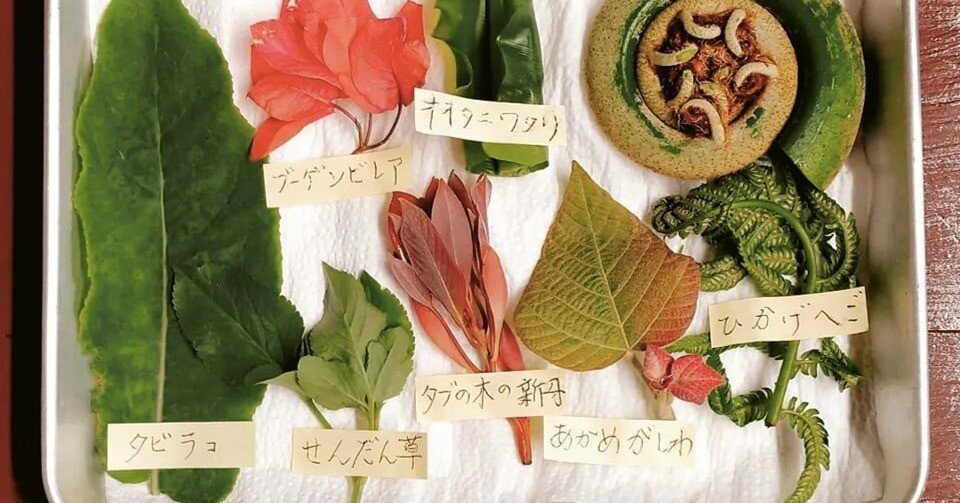 オオタニワタリ
ブーゲンビレア
ひかげへご
タブの木の
あかめがしわ
せんだん草
タビラコ